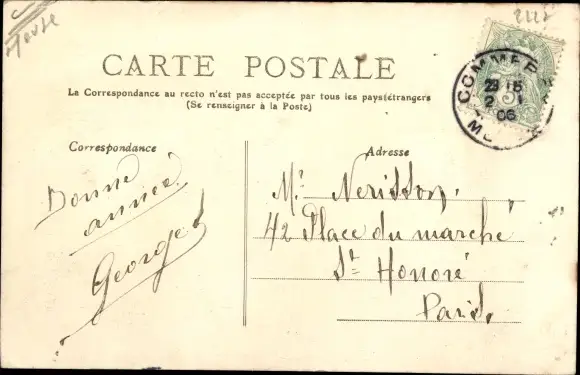 Meuse
2127
CARTE POSTALE
La Correspondance au recto n'est pas acceptée par tous les paysétrangers
(Se renseigner à la Poste)
COMMERCY
23 15
2 - 1
06
Correspondance
Bonne
année
Georges
Adresse
Mr. Nerisson.
42 Place du marché
St Honoré
Paris.